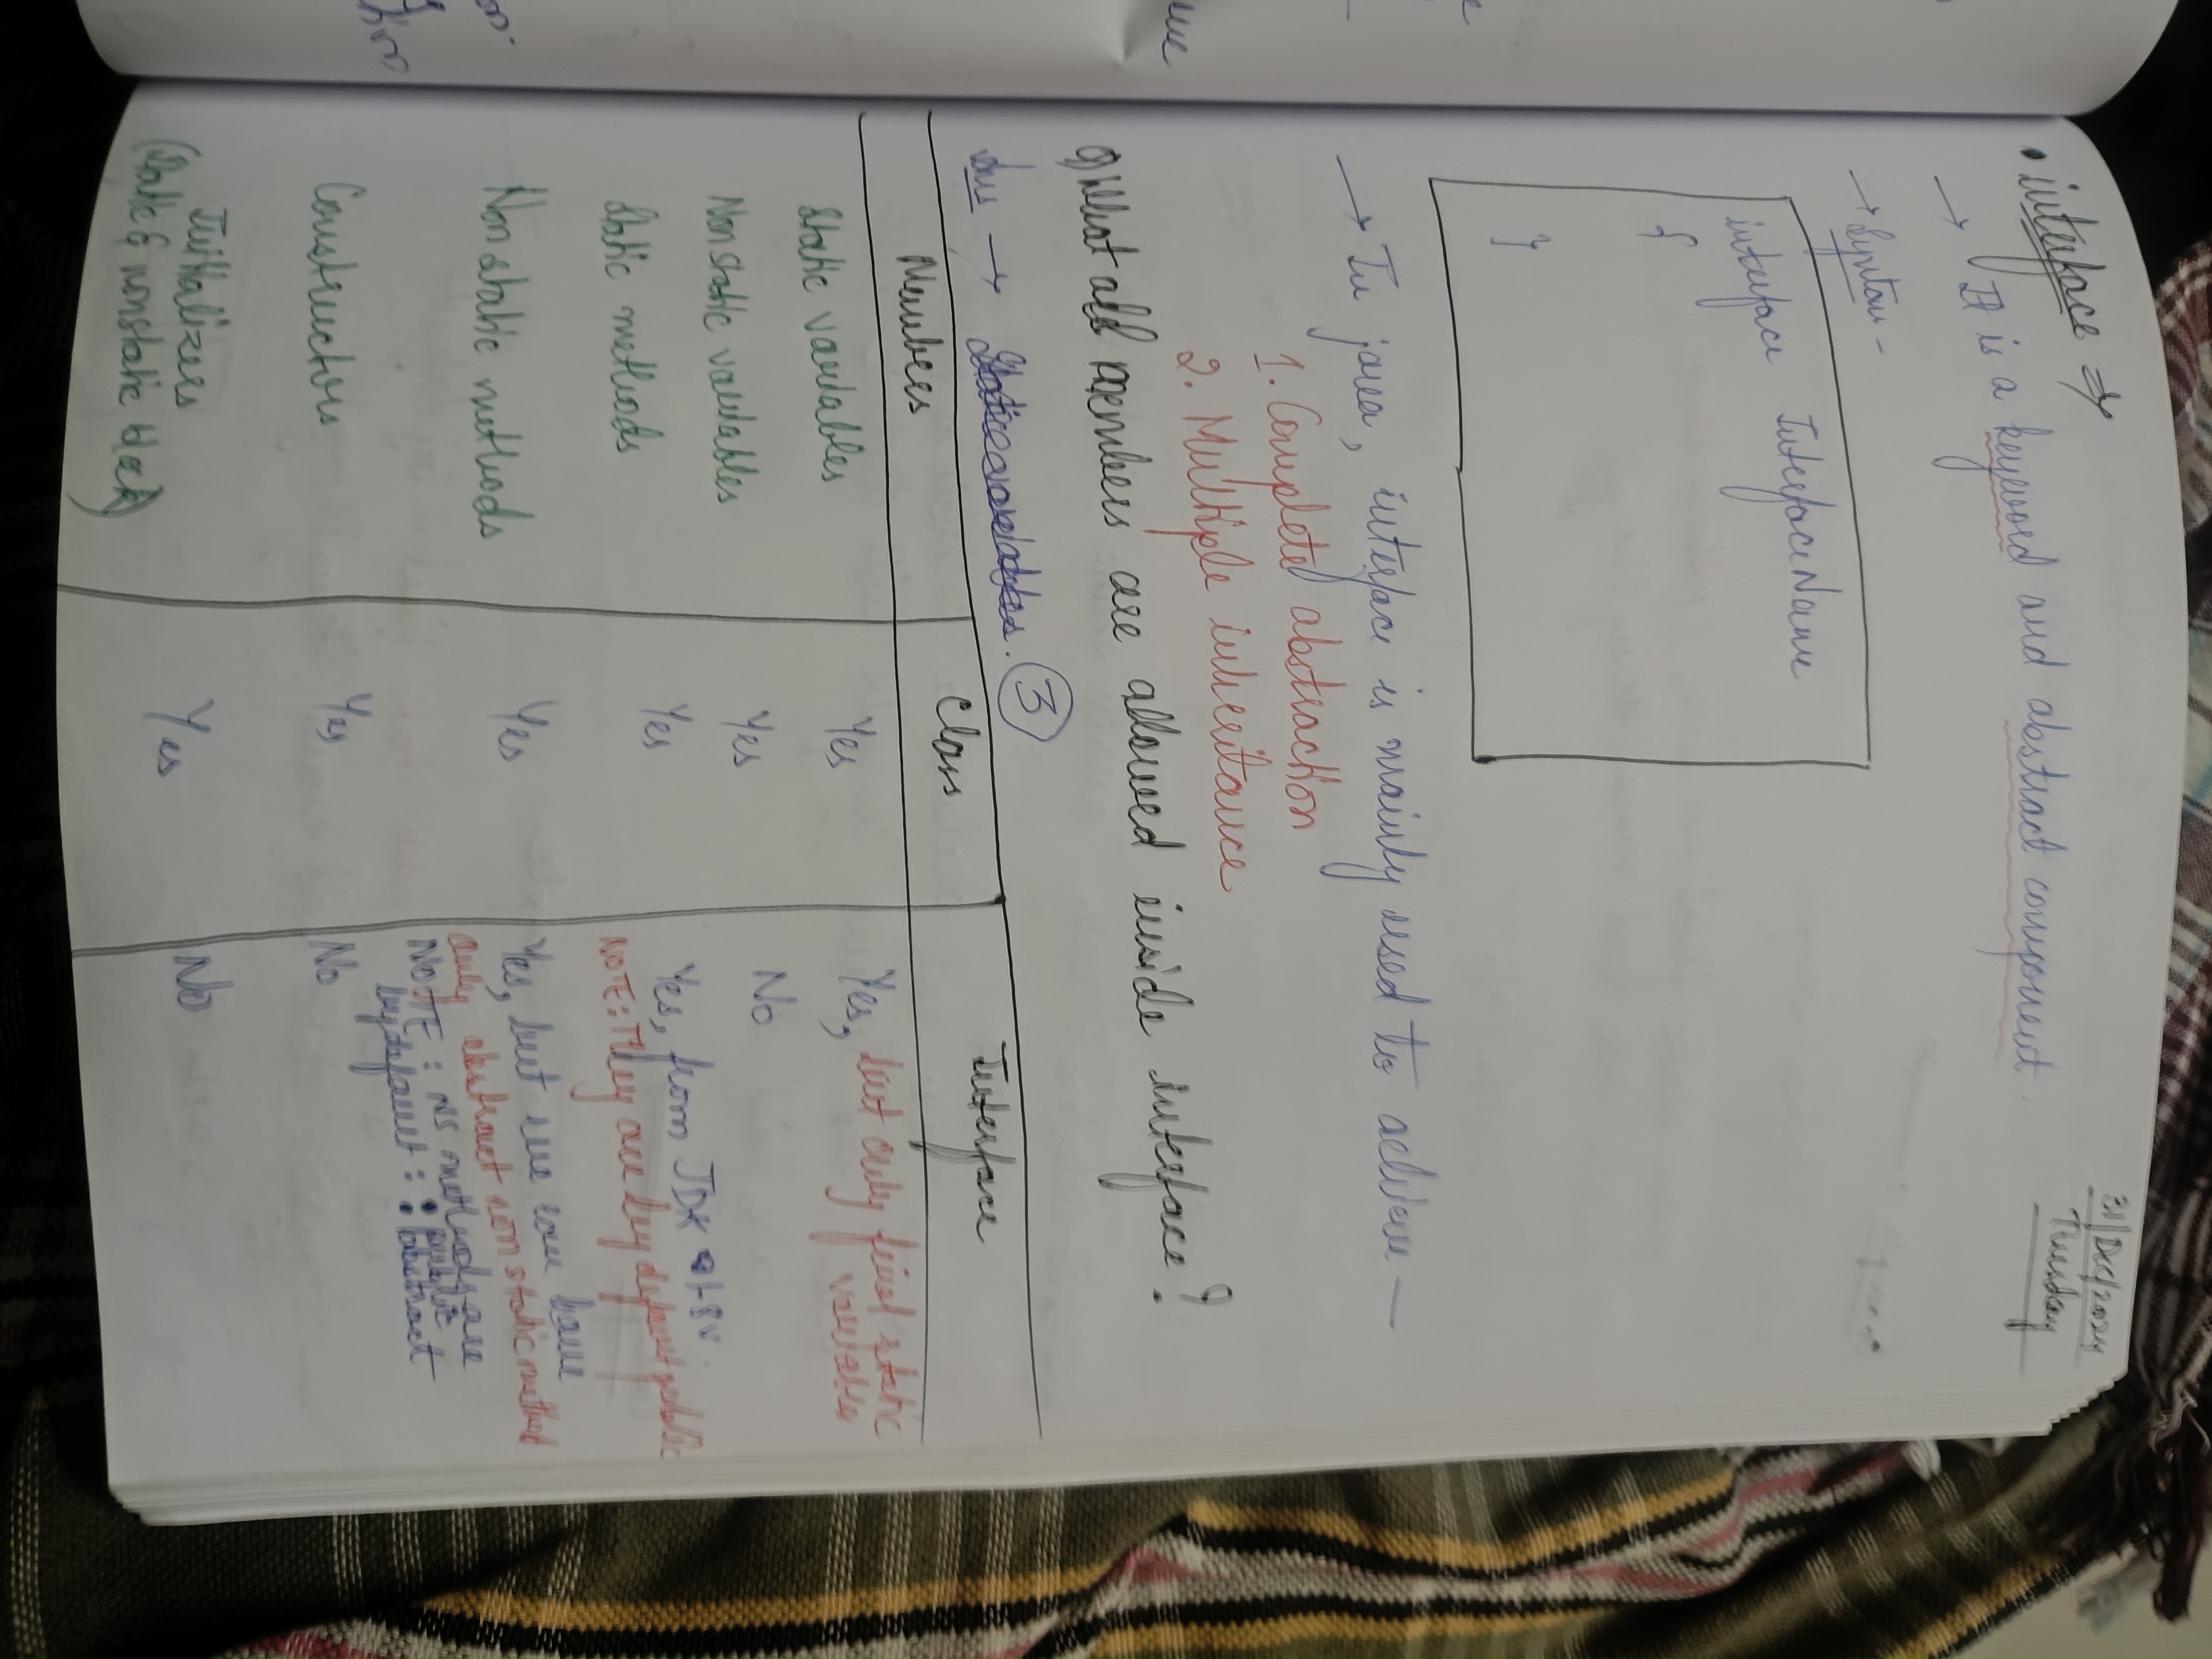 31/Dec/2024
Tuesday
• interface ⇒
→ It is a keyword and abstract component.
→ Syntax –
interface InterfaceName
{
}
→ In java, interface is mainly used to achieve —
1. Complete abstraction
2. Multiple inheritance
Q) What all members are allowed inside interface?
Ans → Static variables. 3
Members Class Interface
Static variables Yes Yes, but only final static
variables
Non static variables Yes No
Static methods Yes Yes, from JDK 1.8v.
NOTE: They are by default public
Non static methods Yes Yes, but we can have
only abstract non static method
NOTE: NS methods are
by default: • public
• abstract
Constructors Yes No
Initializers Yes No
(Static & nonstatic block)